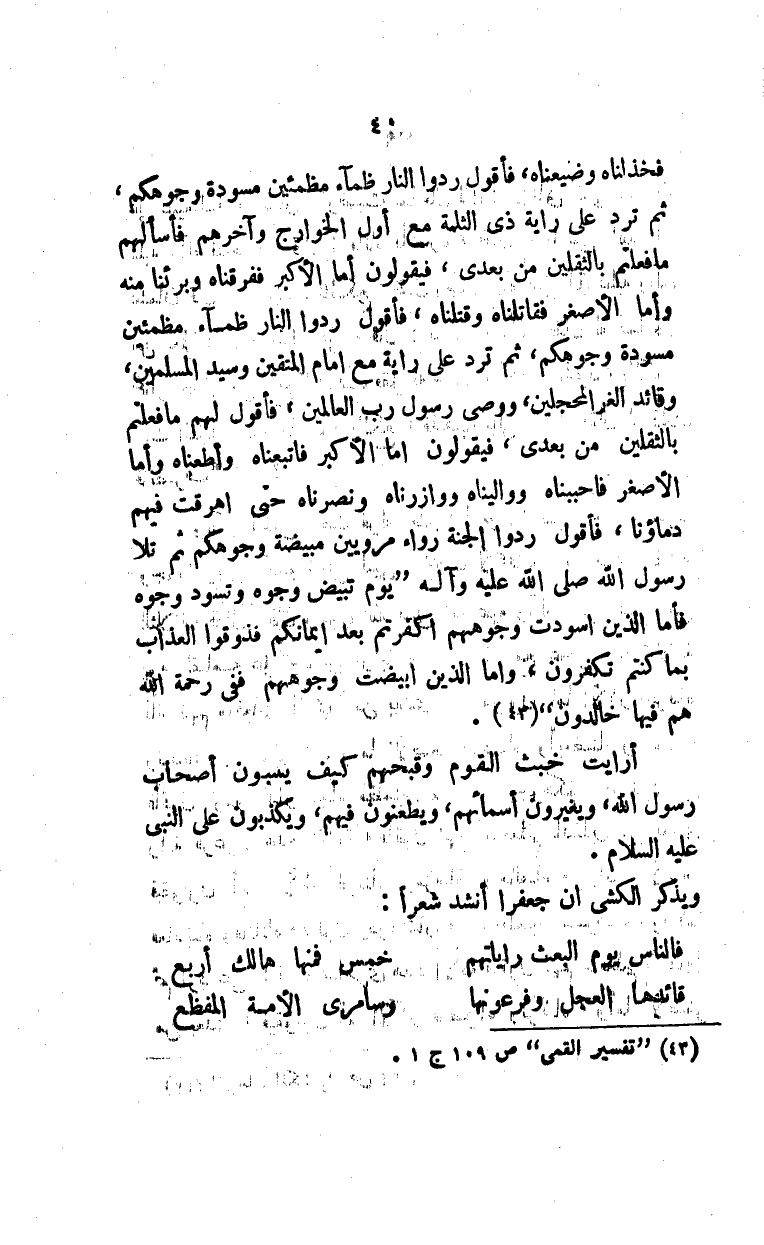 ٤٠
فخذلناه وضيعناه، فأقول ردوا النار ظمآء مظمئين مسودة وجوهكم،
ثم ترد على راية ذى الثلمة مع أول الخوارج وآخرهم فأسألهم
مافعلتم بالثقلين من بعدى، فيقولون أما الأكبر ففرقناه وبرئنا منه
وأما الأصغر فقاتلناه وقتلناه، فأقول ردوا النار ظمـآء مظمئين
مسودة وجوهكم، ثم ترد على راية مع امام المتقين وسيد المسلمين،
وقائد الغر المحجلين، ووصى رسول رب العالمين، فأقول لهم مافعلتم
بالثقلين من بعدى، فيقولون اما الأكبر فاتبعناه وأطعناه وأما
الأصغر فاحببناه وواليناه ووازرناه ونصرناه حتى اهرقت فيهم
دماؤنا، فأقول ردوا الجنة رواء مرويين مبيضة وجوهكم ثم تلا
رسول الله صلى الله عليه وآلـه ”يوم تبيض وجوه وتسود وجوه
فأما الذين اسودت وجوههم اكفرتم بعد ايمانكم فذوقوا العذاب
بماكنتم تكفرون، واما الذين ابيضت وجوههم ففى رحمة الله
هم فيها خالدون“(٤٣).
أرايت خبث القوم وقبحهم كيف يسبون أصحاب
رسول الله، ويغيرون أسمائهم، ويطعنون فيهم، ويكذبون على النبى
عليه السلام.
ويذكر الكشى ان جعفرا أنشد شعراً:
فالناس يوم البعث راياتهم خمس فمنها هالك أربع
قائدها العجل وفرعونها وسامرى الأمـة المفظع
(٤٣) ”تفسير القمى“ ص ١٠٩ ج ١.